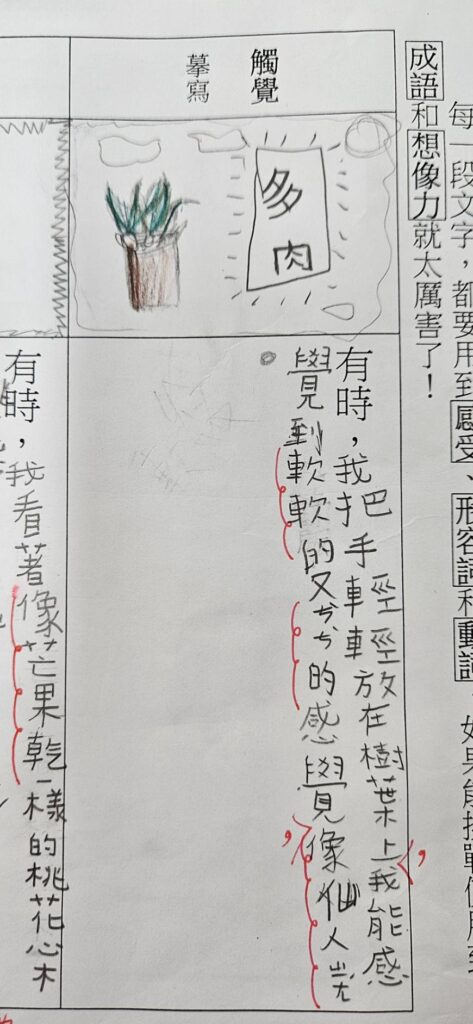 每一段文字，都要用到感受、形容詞和動詞。如果能挑戰使用到
成語和想像力就太厲害了！
觸覺
摹寫
多
肉
有時，我把手輕輕放在樹葉上，我能感
覺到軟軟的又ㄘㄘ的感覺，像仙人
。
有時，我看著像芒果乾一樣的桃花心木